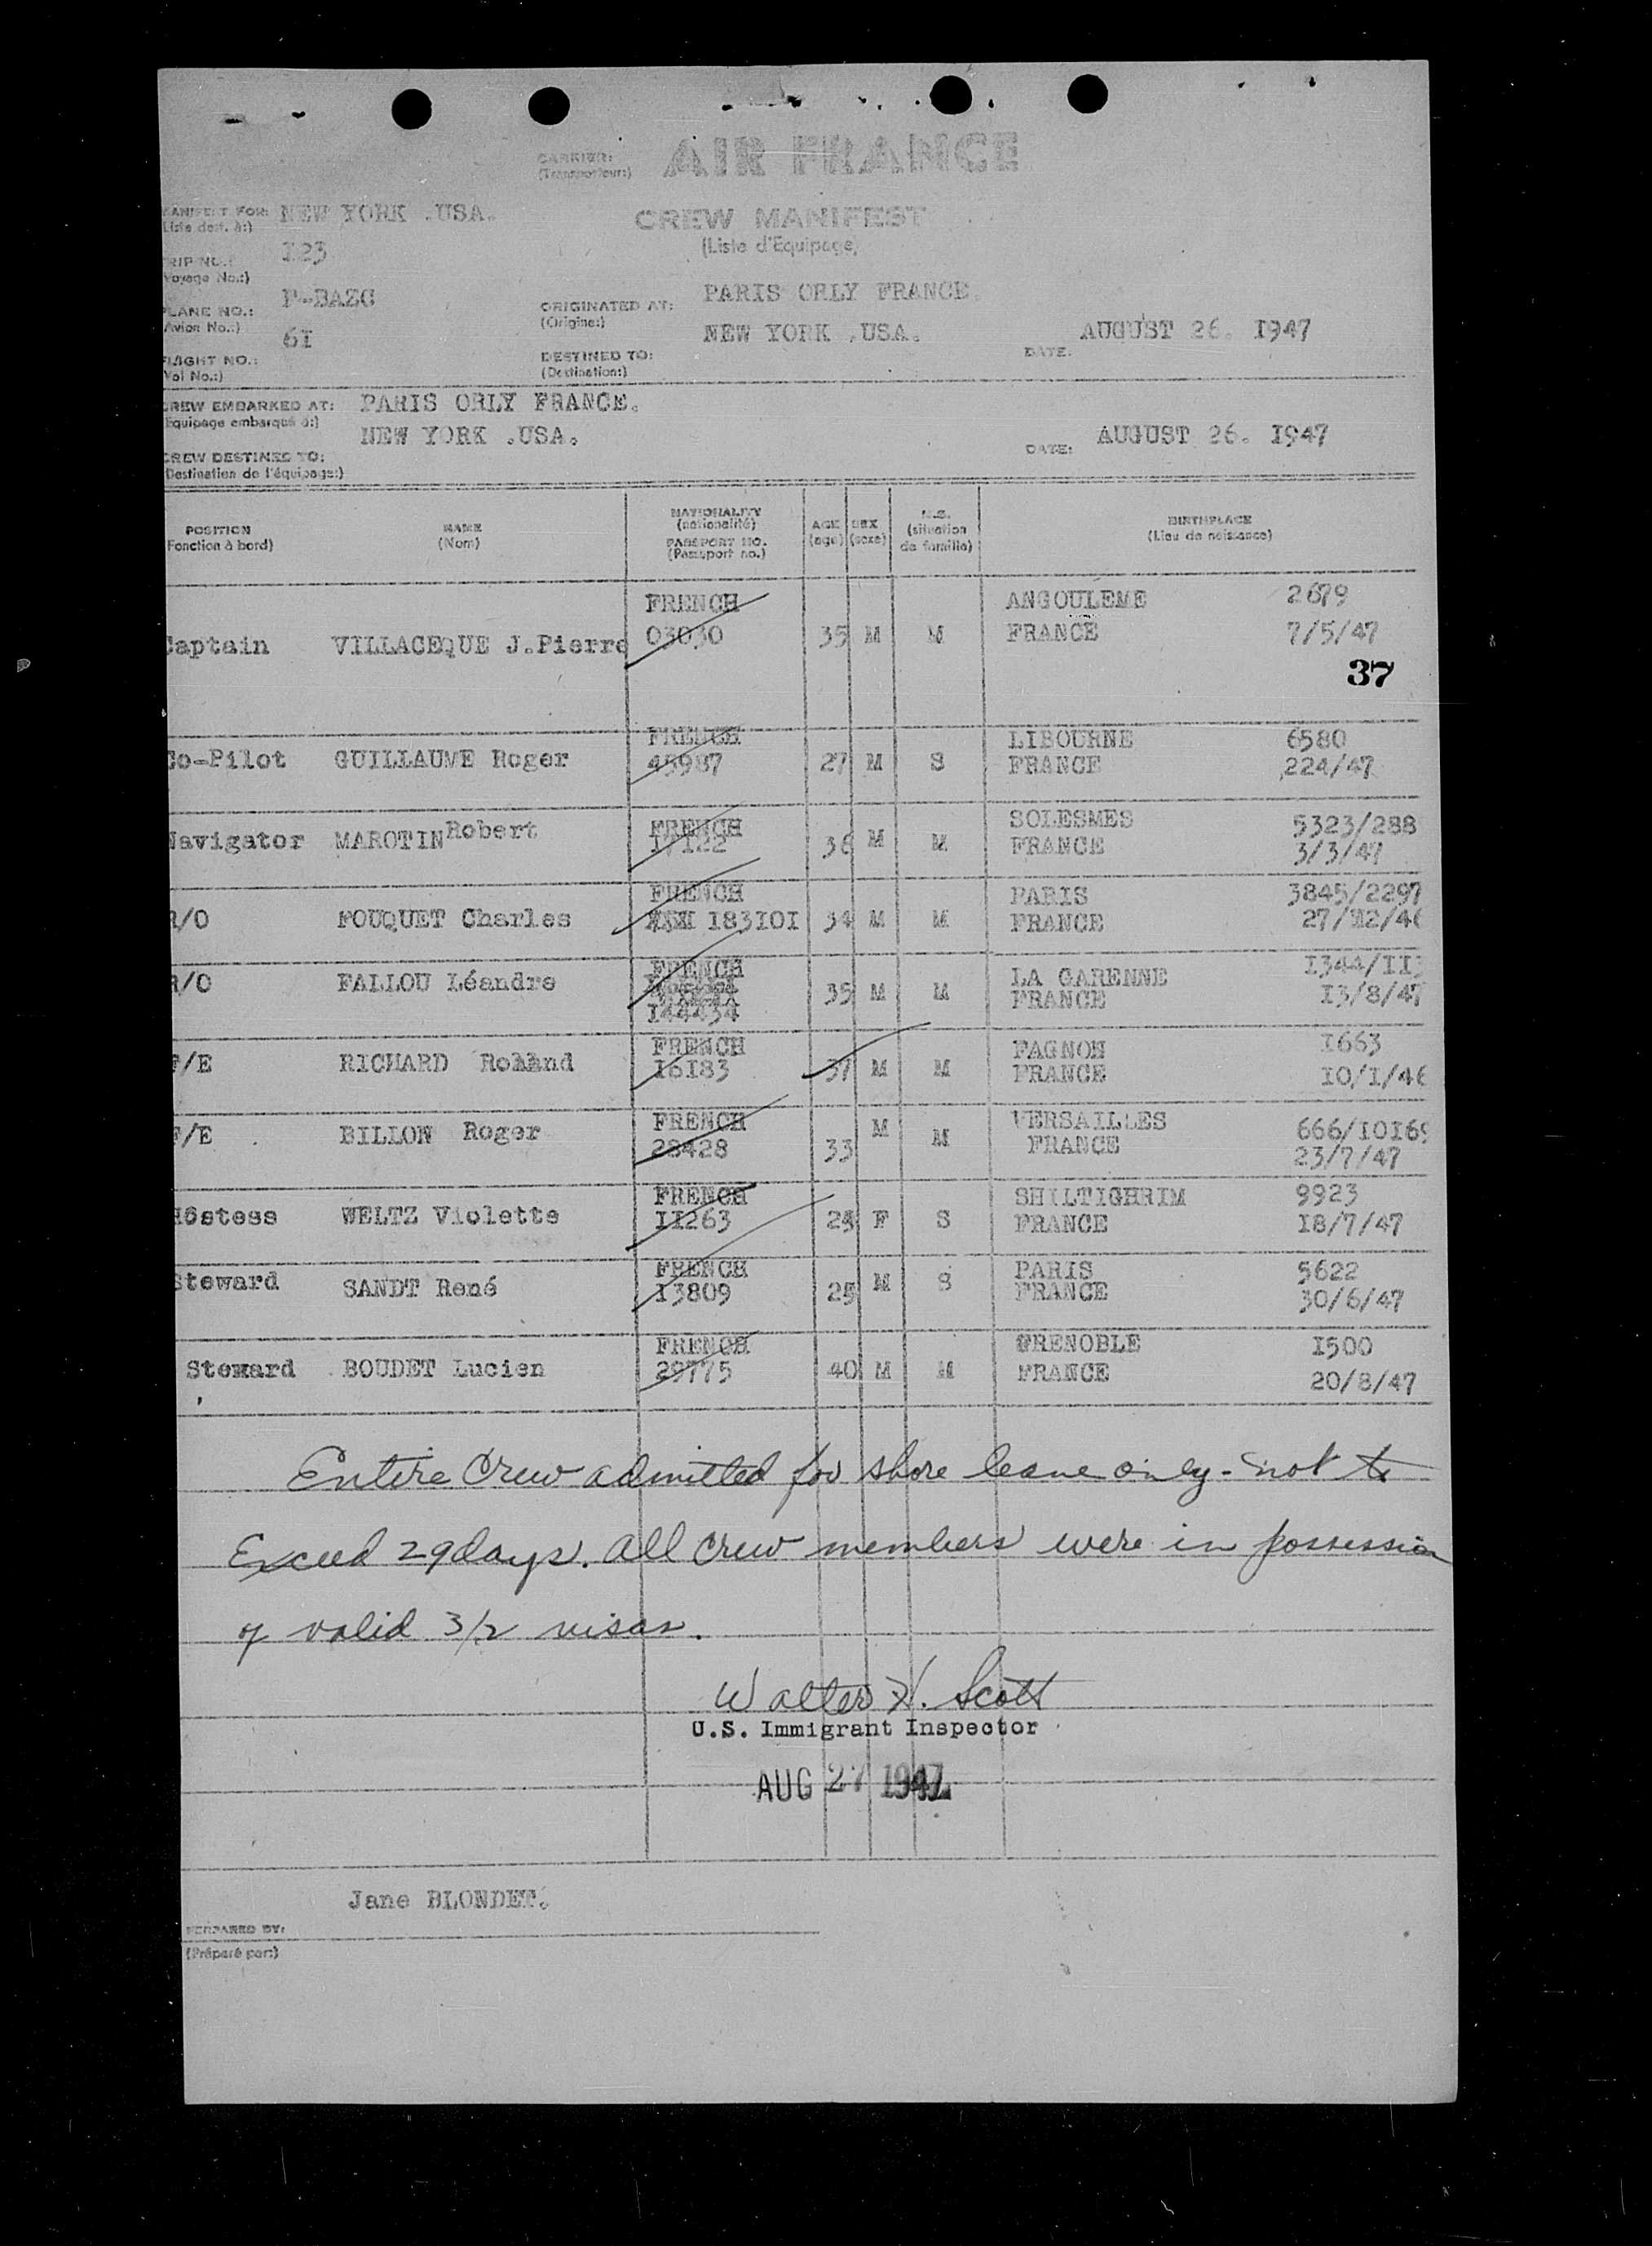 CARRIER: AIR FRANCE
(Transporteur:)
MANIFEST FOR: NEW YORK .USA. CREW MANIFEST
(Liste dest. à:) (Liste d'Equipage)
TRIP NO.: I23
(Voyage No.:)
PLANE NO.: F-BAZC ORIGINATED AT: PARIS ORLY FRANCE.
(Avion No.:) (Origine:)
6I NEW YORK ,USA. AUGUST 26. I947
FLIGHT NO.: DESTINED TO: DATE:
(Vol No.:) (Destination:)
CREW EMBARKED AT: PARIS ORLY FRANCE.
(Equipage embarqué à:)
NEW YORK .USA. AUGUST 26. I947
CREW DESTINED TO: DATE:
(Destination de l'équipage:)
POSITION NAME NATIONALITY AGE SEX M.S. BIRTHPLACE
(Fonction à bord) (Nom) (nationalité) (age) (sexe) (situation de famille) (Lieu de naissance)
PASSPORT NO.
(Passport no.)
FRENCH ANGOULEME 2679
Captain VILLACEQUE J.Pierre 03030 35 M M FRANCE 7/5/47
37
FRENCH LIBOURNE 6580
Co-Pilot GUILLAUME Roger 45987 27 M S FRANCE 224/47
FRENCH SOLESMES 5323/288
Navigator MAROTIN Robert I7I22 36 M M FRANCE 3/3/47
FRENCH PARIS 3845/2297
R/O FOUQUET Charles I83I0I 34 M M FRANCE
FRENCH LA GARENNE I344/II3
R/O FALLOU Léandre I44434 35 M M FRANCE I3/8/47
FRENCH FAGNON I663
F/E RICHARD I6I83 37 M M FRANCE I0/I/46
FRENCH VERSAILLES 666/I0I69
F/E BILLON Roger 28428 33 M M FRANCE 23/7/47
FRENCH SHILTIGHRIM 9923
Hôstess WELTZ Violette II263 F S FRANCE I8/7/47
FRENCH PARIS 5622
Steward SANDT René I3809 25 M S FRANCE 30/6/47
FRENCH GRENOBLE I500
Steward BOUDET Lucien 29775 40 M M FRANCE 20/8/47
Entire Crew admitted for shore leave only - not to
Exceed 29 days. All Crew members were in possession
of valid 3/2 visas.
Walter H. Scott
U.S. Immigrant Inspector
AUG 27 1947
Jane BLONDET.
PREPARED BY:
(Préparé par:)